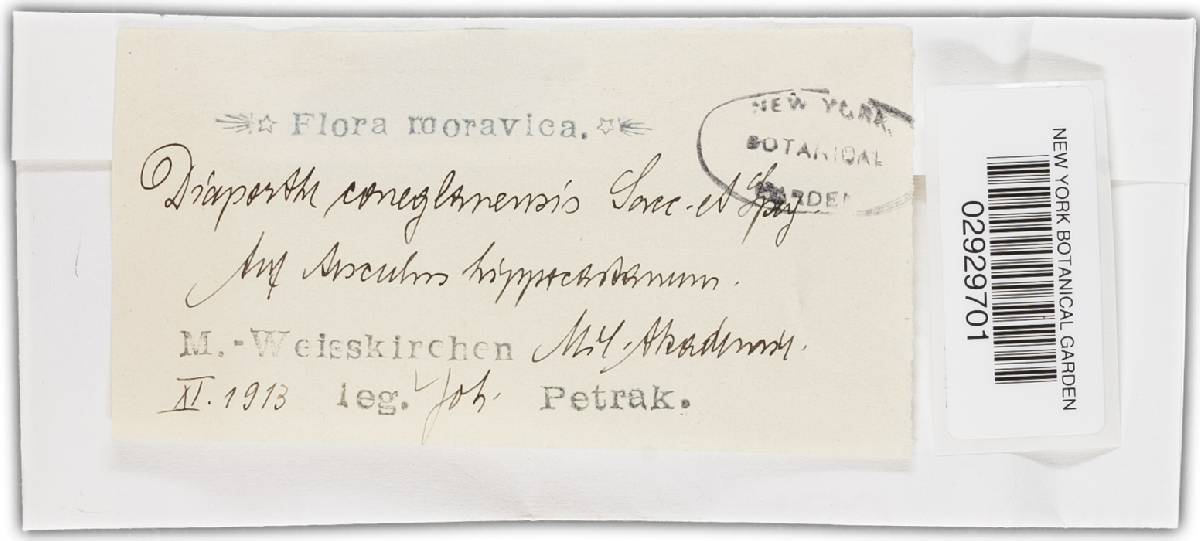 Flora moravica.
Diaporthe coneglanensis Sacc. et Speg.
Auf Aesculus hippocastanum.
M.-Weisskirchen Mil. Akademie.
XI. 1913 leg. Joh. Petrak.
NEW YORK
BOTANICAL
GARDEN
NEW YORK BOTANICAL GARDEN
02929701